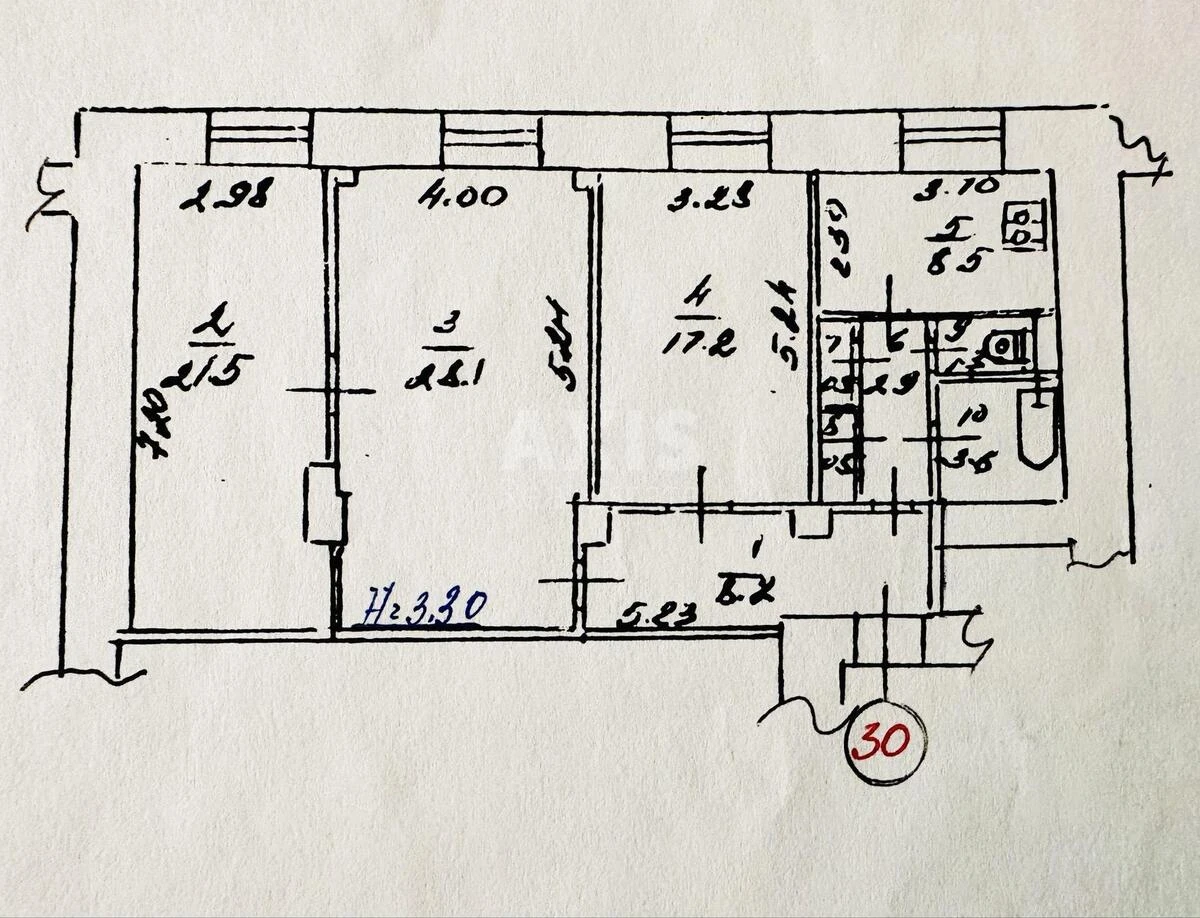 2.98
4.00
3.23
3.70
2 30
5
8.5
2
21.5
7.20
3
28.1
5.24
4
17.2
5.24
7
6
9
2.9
8
10
3.6
1
8.2
5.23
H=3.30
30
AXIS